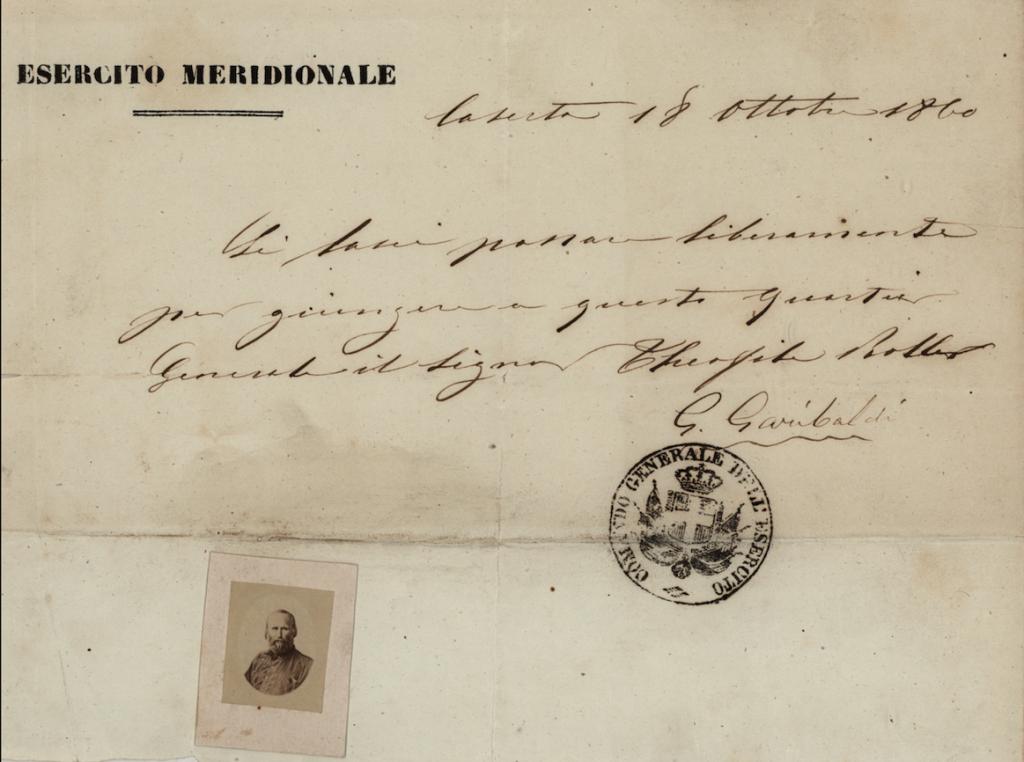 ESERCITO MERIDIONALE
Caserta 18 Ottobre 1860
Si lasci passare liberamente
per giungere a questo Quartier
Generale il Signor Theophile Roller
G. Garibaldi
COMANDO GENERALE DELL'ESERCITO